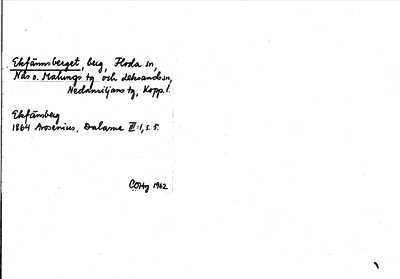 Ekfännsberget, berg, Floda sn,
Nås o. Malungs tg och Leksands sn,
Nedansiljans tg, Kopp. l.
Ekfänsberg
1864 Arosenius, Dalarne III:1, s. 5.
COHg 1962